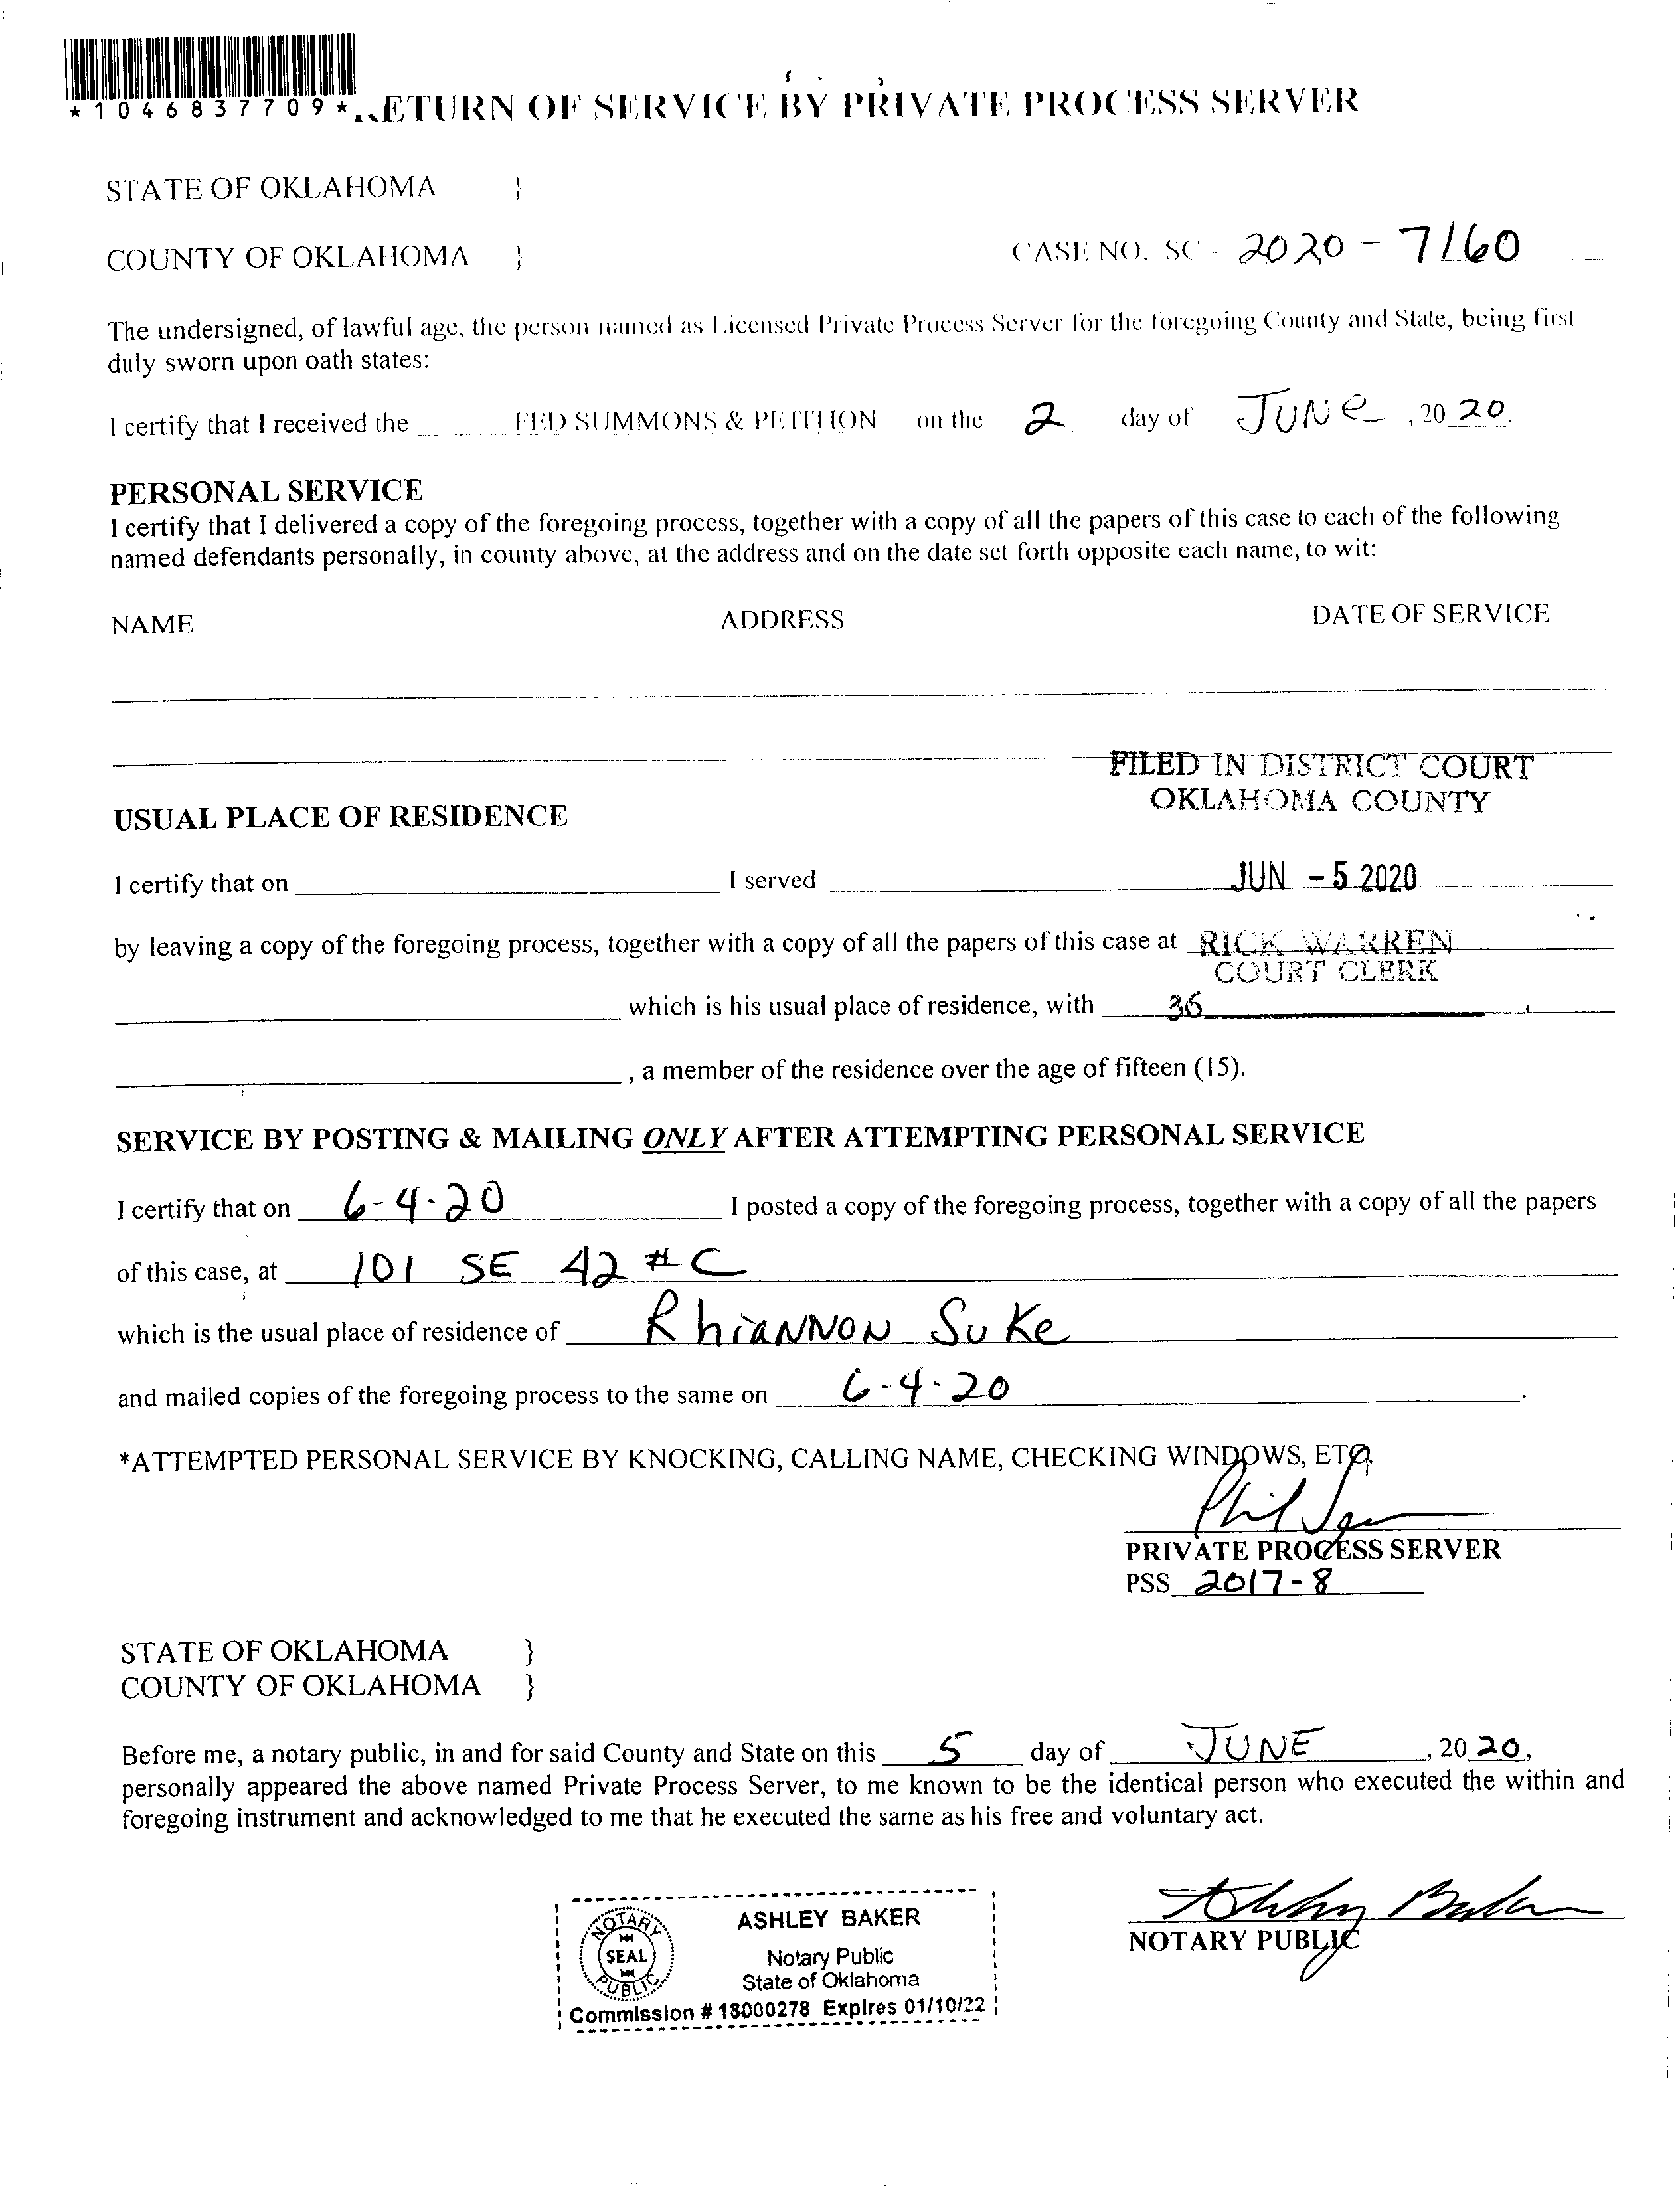 *1046837709* ETURN OF SERVICE BY PRIVATE PROCESS SERVER
STATE OF OKLAHOMA }
COUNTY OF OKLAHOMA } CASE NO. SC - 2020 - 7160
The undersigned, of lawful age, the person named as Licensed Private Process Server for the foregoing County and State, being first
duly sworn upon oath states:
I certify that I received the FED SUMMONS & PETITION on the 2 day of JUNE , 20 20.
PERSONAL SERVICE
I certify that I delivered a copy of the foregoing process, together with a copy of all the papers of this case to each of the following
named defendants personally, in county above, at the address and on the date set forth opposite each name, to wit:
NAME ADDRESS DATE OF SERVICE
FILED IN DISTRICT COURT
OKLAHOMA COUNTY
USUAL PLACE OF RESIDENCE
I certify that on I served JUN - 5 2020
by leaving a copy of the foregoing process, together with a copy of all the papers of this case at RICK WARREN
COURT CLERK
which is his usual place of residence, with 36
, a member of the residence over the age of fifteen (15).
SERVICE BY POSTING & MAILING ONLY AFTER ATTEMPTING PERSONAL SERVICE
I certify that on 6-4-20 I posted a copy of the foregoing process, together with a copy of all the papers
of this case, at 101 SE 42 #C
which is the usual place of residence of RhiANNON SuKe
and mailed copies of the foregoing process to the same on 6-4-20 .
*ATTEMPTED PERSONAL SERVICE BY KNOCKING, CALLING NAME, CHECKING WINDOWS, ETC.
Phil
PRIVATE PROCESS SERVER
PSS 2017-8
STATE OF OKLAHOMA }
COUNTY OF OKLAHOMA }
Before me, a notary public, in and for said County and State on this 5 day of JUNE , 20 20,
personally appeared the above named Private Process Server, to me known to be the identical person who executed the within and
foregoing instrument and acknowledged to me that he executed the same as his free and voluntary act.
Ashley Baker
NOTARY PUBLIC
NOTARY PUBLIC SEAL
ASHLEY BAKER
Notary Public
State of Oklahoma
Commission # 18000278 Expires 01/10/22